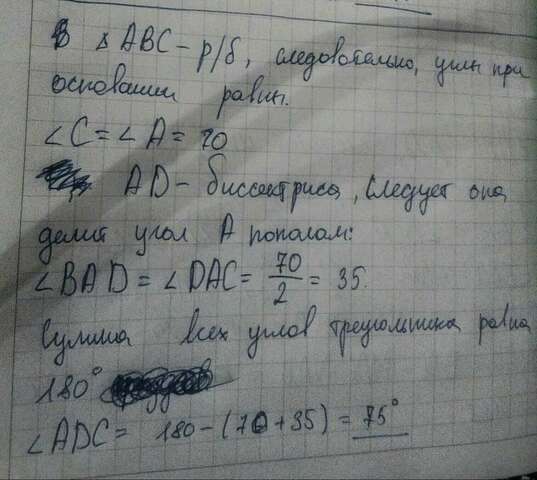 В △ ABC - р/б, следовательно, углы при
основании равны.
∠C = ∠A = 70
AD - биссектриса, следует она
делит угол A пополам:
∠BAD = ∠DAC = 70/2 = 35.
Сумма всех углов треугольника равна
180°
∠ADC = 180 - (70 + 35) = 75°